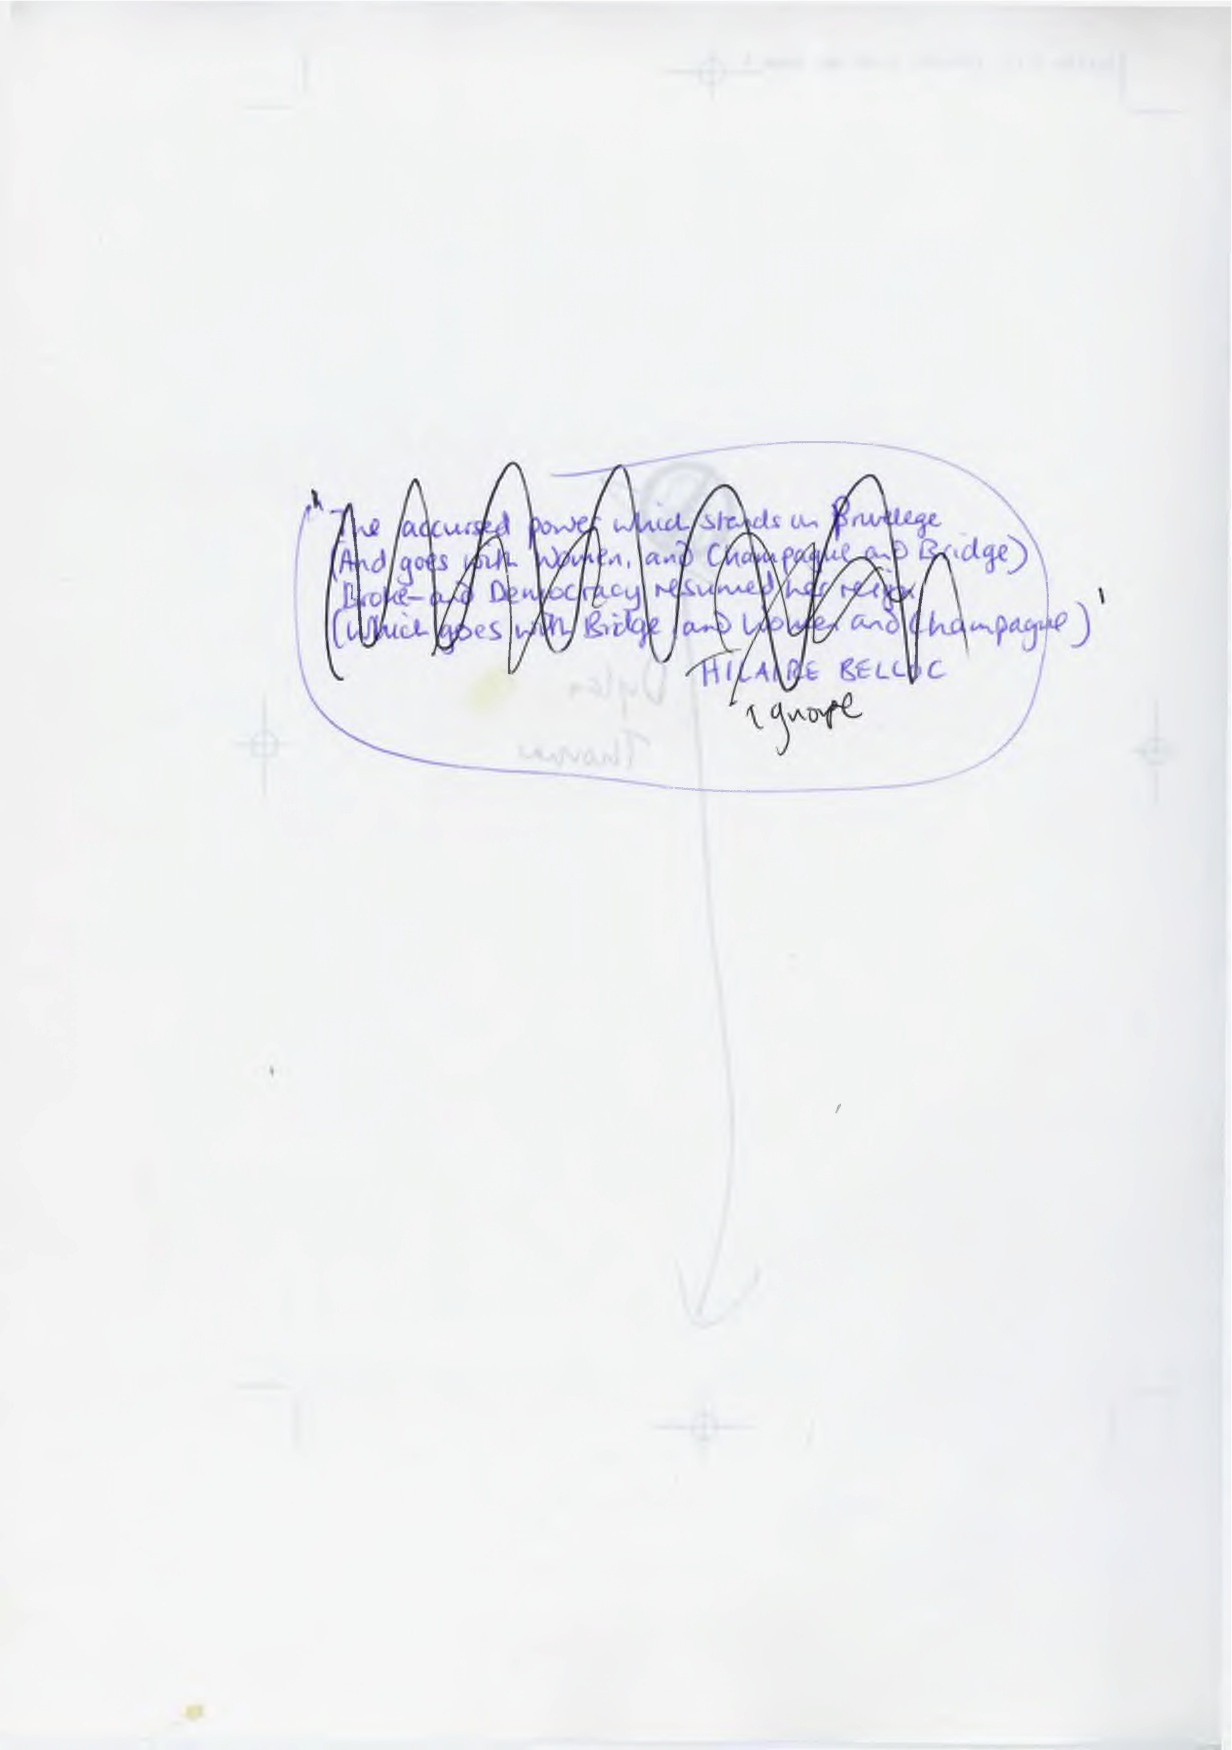 'The accursed power which stands on Privilege
(And goes with Women, and Champagne and Bridge)
Broke—and Democracy resumed her reign
(Which goes with Bridge, and Women and Champagne)'
HILAIRE BELLOC
ignore
Dylan
Thomas